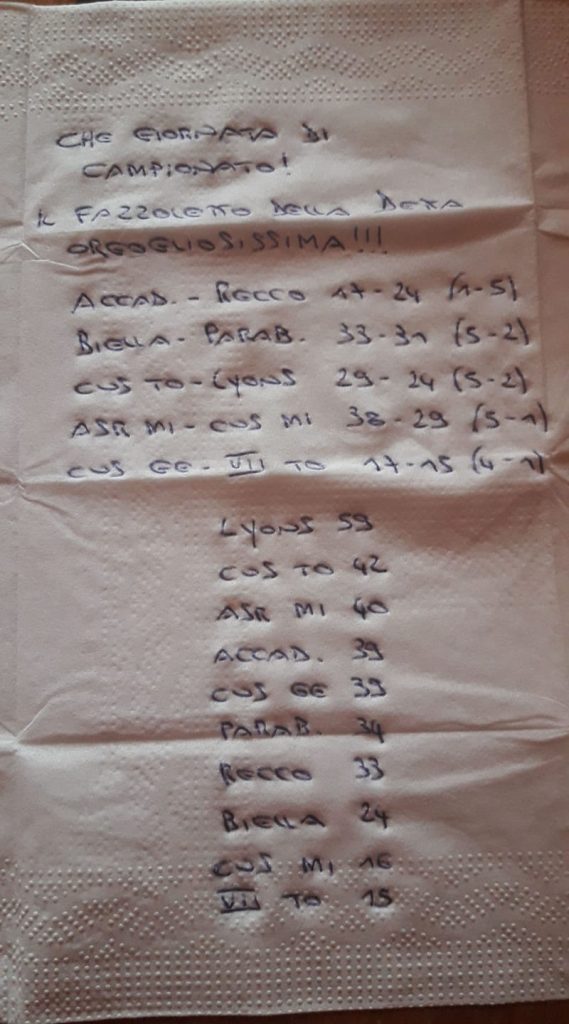 CHE GIORNATA DI
CAMPIONATO!
IL FAZZOLETTO DELLA META
ORGOGLIOSISSIMA!!!
ACCAD. - RECCO 17-24 (1-5)
BIELLA - PARAB. 33-31 (5-2)
CUS TO - LYONS 29-24 (5-2)
ASR MI - CUS MI 38-29 (5-1)
CUS GE - VII TO 17-15 (4-1)
LYONS 59
CUS TO 42
ASR MI 40
ACCAD. 39
CUS GE 39
PARAB. 34
RECCO 33
BIELLA 24
CUS MI 16
VII TO 15